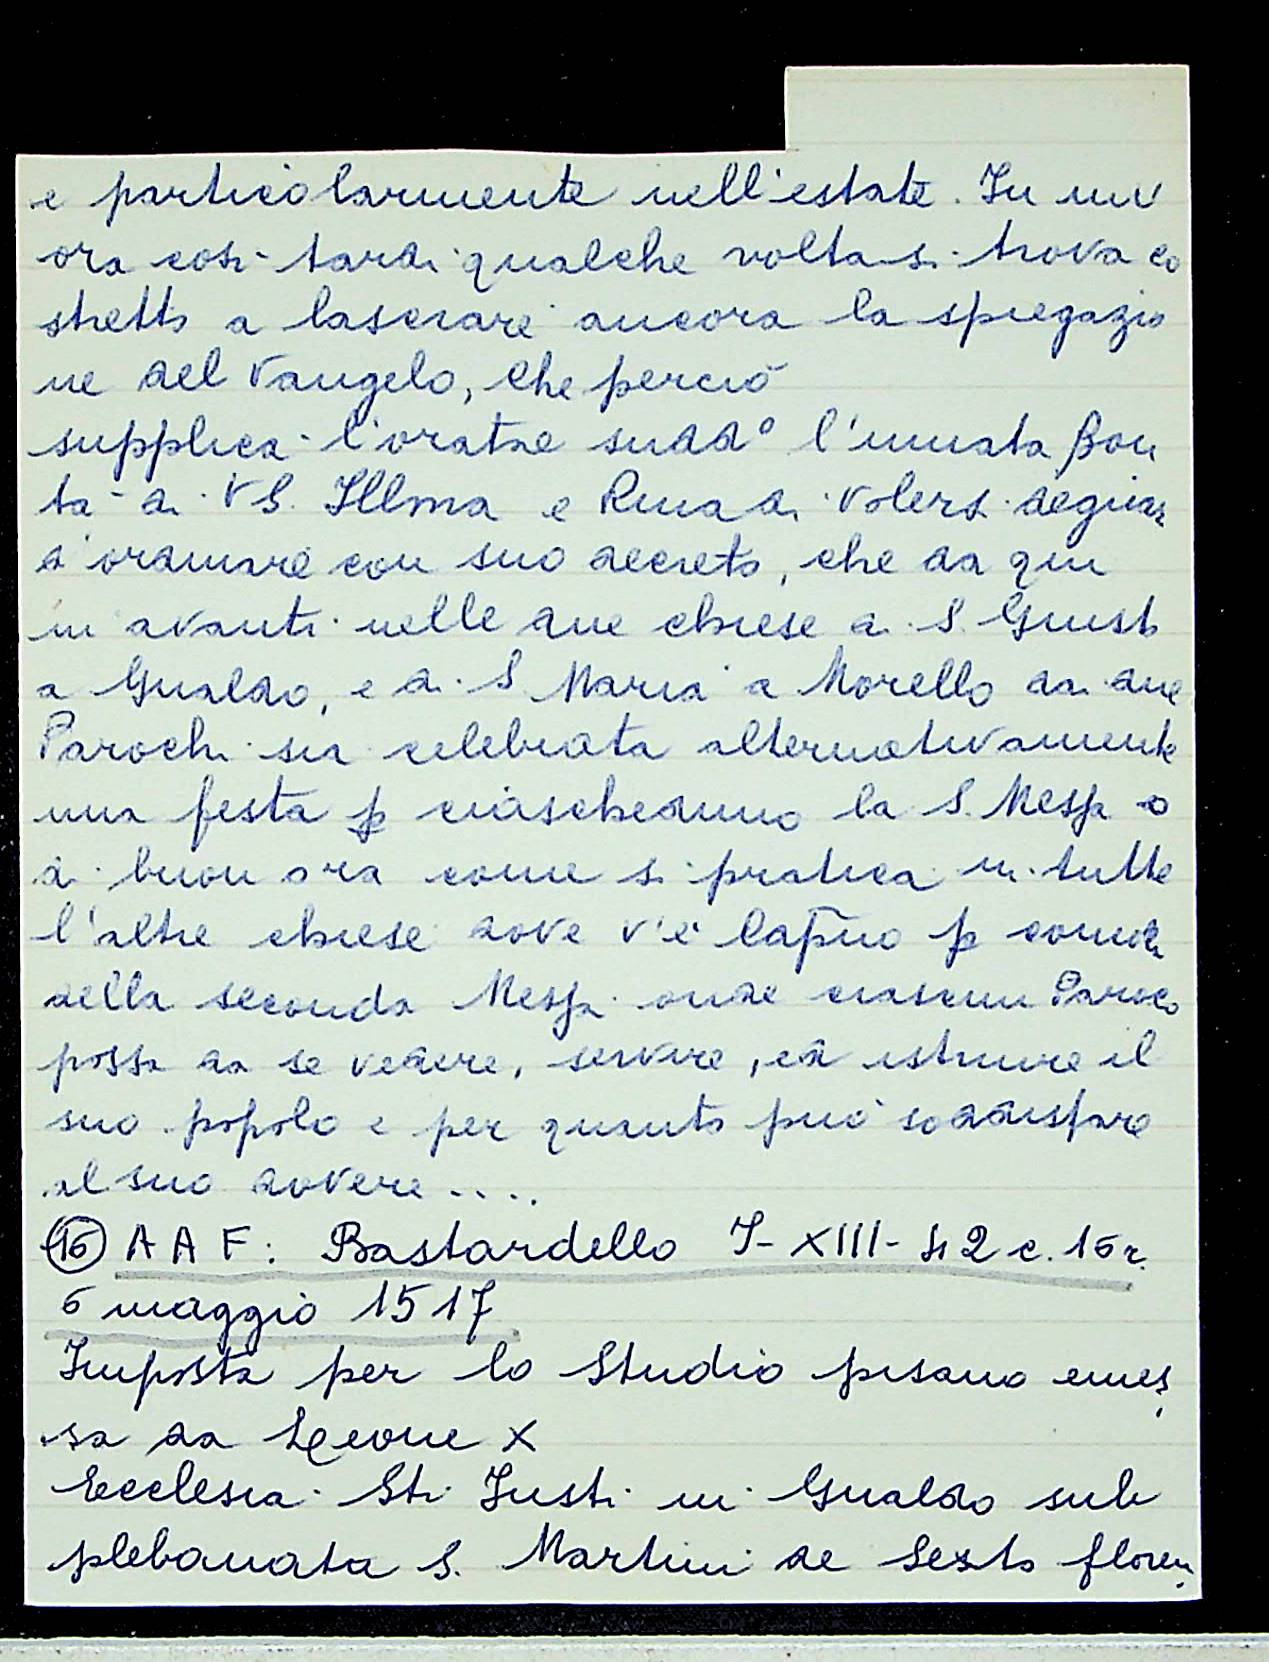 e particolarmente nell'estate. In un'
ora così tardi qualche volta si trova co
stretto a lasciare ancora la spiegazio
ne del Vangelo, che perciò
supplica l'oratre sudd° l'innata Bon
tà di VS. Illma e Rma di volersi degnar
d'ordinare con suo decreto, che da qui
in avanti nelle due chiese di S. Giusto
a Gualdo, e di S Maria a Morello dai due
Parochi sia celebrata alternativamente
una festa p ciascheduno la S. Messa
di buon ora come si pratica in tutte
l'altre chiese dove v'è Capno p comodo
della seconda Messa onde ciascun Paroco
possa da se vedere, servire, ed istruire il
suo popolo e per quanto può soddisfare
al suo dovere....
16 AAF: Bastardello I-XIII-42 c. 15r.
6 maggio 1517
Imposta per lo Studio pisano emes
sa da Leone X
Ecclesia Sti Iusti in Gualdo sub
plebanata S. Martini de Sexto floren